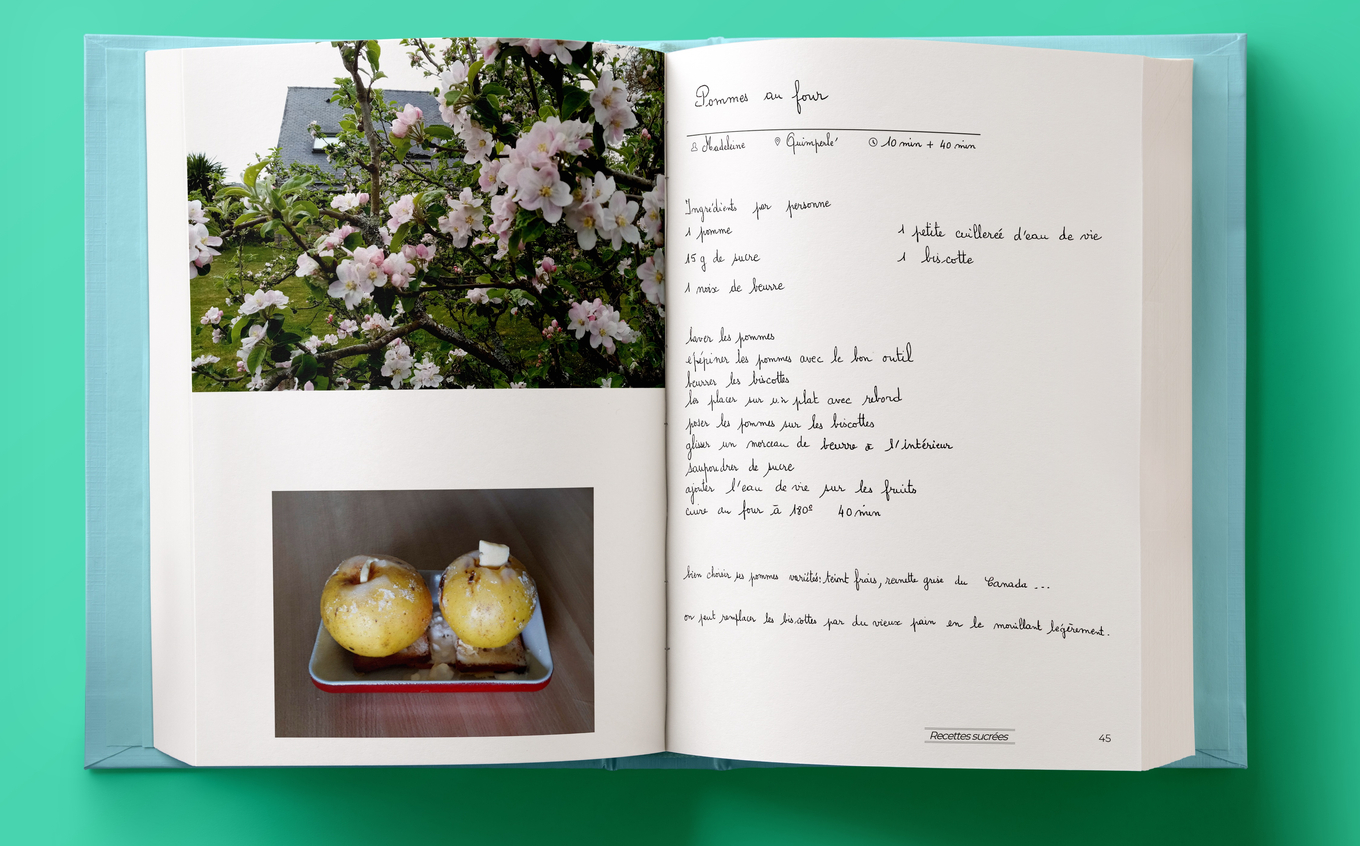 Pommes au four
Madeleine Quimperlé 10 min + 40 min
Ingrédients par personne
1 pomme
15 g de sucre
1 noix de beurre
1 petite cuillereé d'eau de vie
1 biscotte
laver les pommes
epépiner les pommes avec le bon outil
beurrer les biscottes
les placer sur un plat avec rebord
poser les pommes sur les biscottes
glisser un morceau de beurre à l'intérieur
saupoudrer de sucre
ajouter l'eau de vie sur les fruits
cuire au four à 180° 40 min
bien choisir ses pommes variétés: teint frais, reinette grise du Canada ...
on peut remplacer les biscottes par du vieux pain en le mouillant legèrement.
Recettes sucrées
45